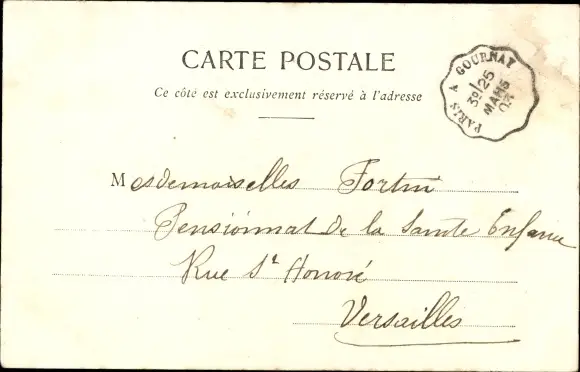 CARTE POSTALE
Ce côté est exclusivement réservé à l'adresse
PARIS A GOURNAY
25
MARS
Mesdemoiselles Fortin
Pensionnat de la Sainte Enfance
Rue St Honoré
Versailles